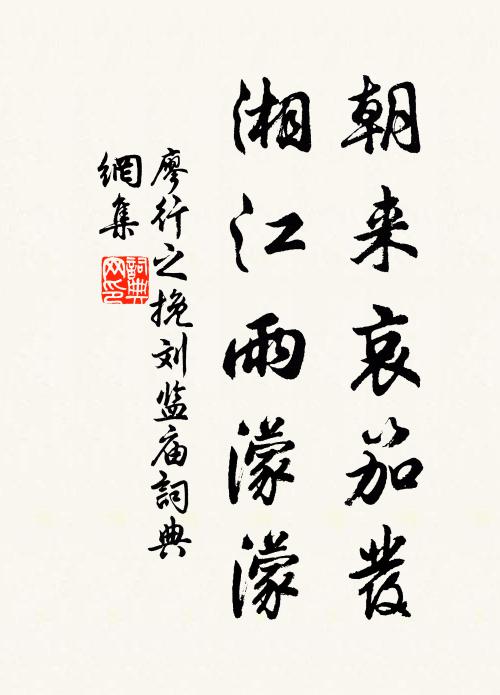 朝来哀笳發
湘江雨濛濛
廖行之挽刘监庙詞典
網集
詞典
网印